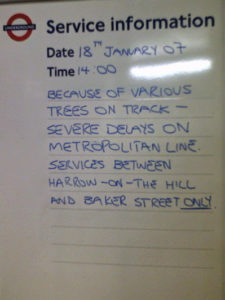 UNDERGROUND
Service information
Date 18TH JANUARY 07
Time 14:00
BECAUSE OF VARIOUS
TREES ON TRACK –
SEVERE DELAYS ON
METROPOLITAN LINE.
SERVICES BETWEEN
HARROW-ON-THE HILL
AND BAKER STREET ONLY.